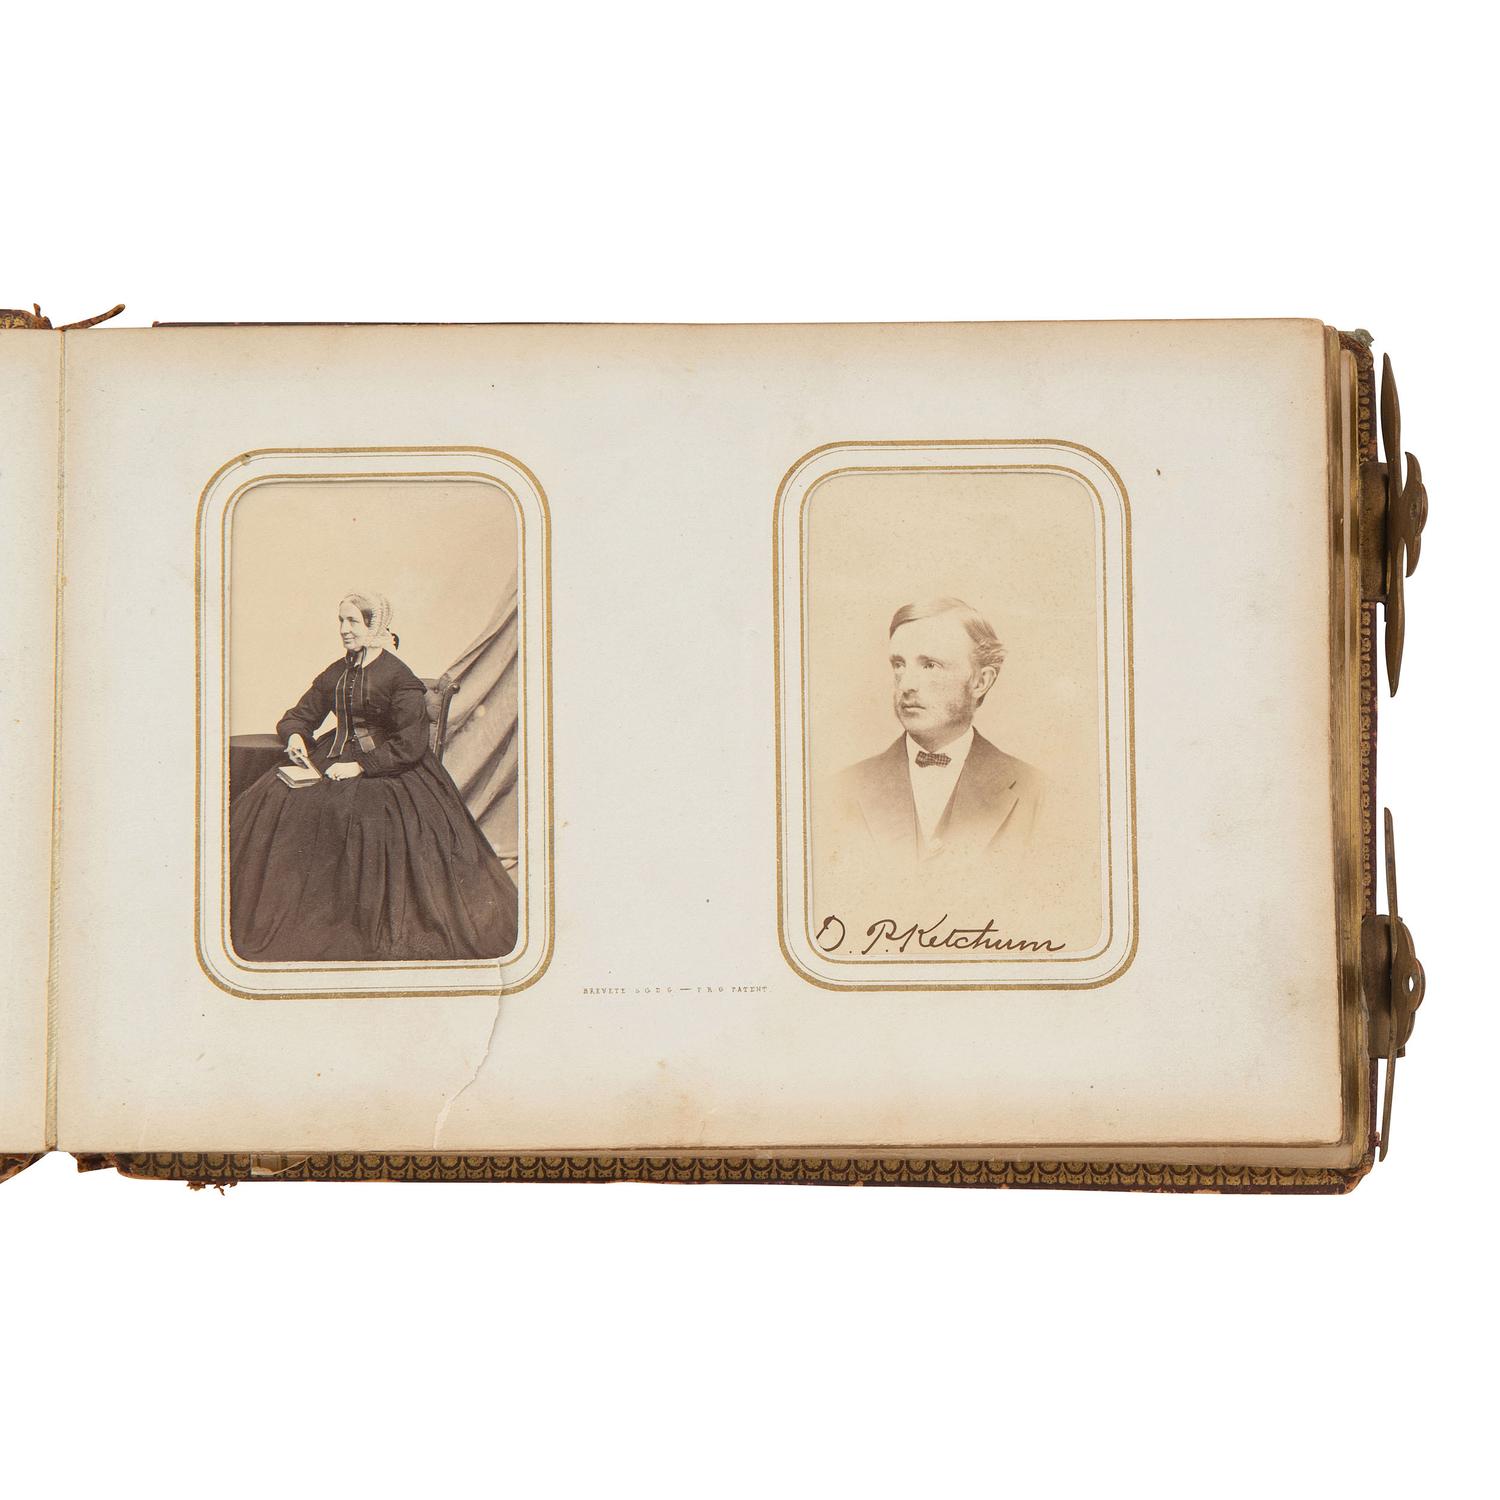 D. P. Ketchum
BREVETE S. G. D. G. — F R G PATENT.